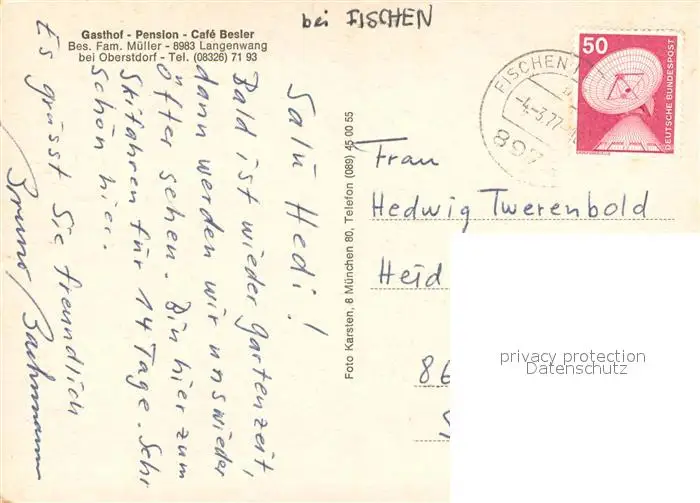 bei FISCHEN
Gasthof - Pension - Café Besler
Bes. Fam. Müller - 8983 Langenwang
bei Oberstdorf - Tel. (08326) 71 93
Salü Hedi!
Bald ist wieder Gartenzeit,
dann werden wir uns wieder
öfter sehen. Bin hier zum
Skifahren für 14 Tage. Sehr
schön hier.
Es grüsst Sie freundlich
Bruno Bachmann
Foto Karsten, 8 München 80, Telefon (089) 45 00 55
FISCHEN
-4.-3.77
897
50
DEUTSCHE BUNDESPOST
Frau
Hedwig Twerenbold
Heid
86
privacy protection
Datenschutz